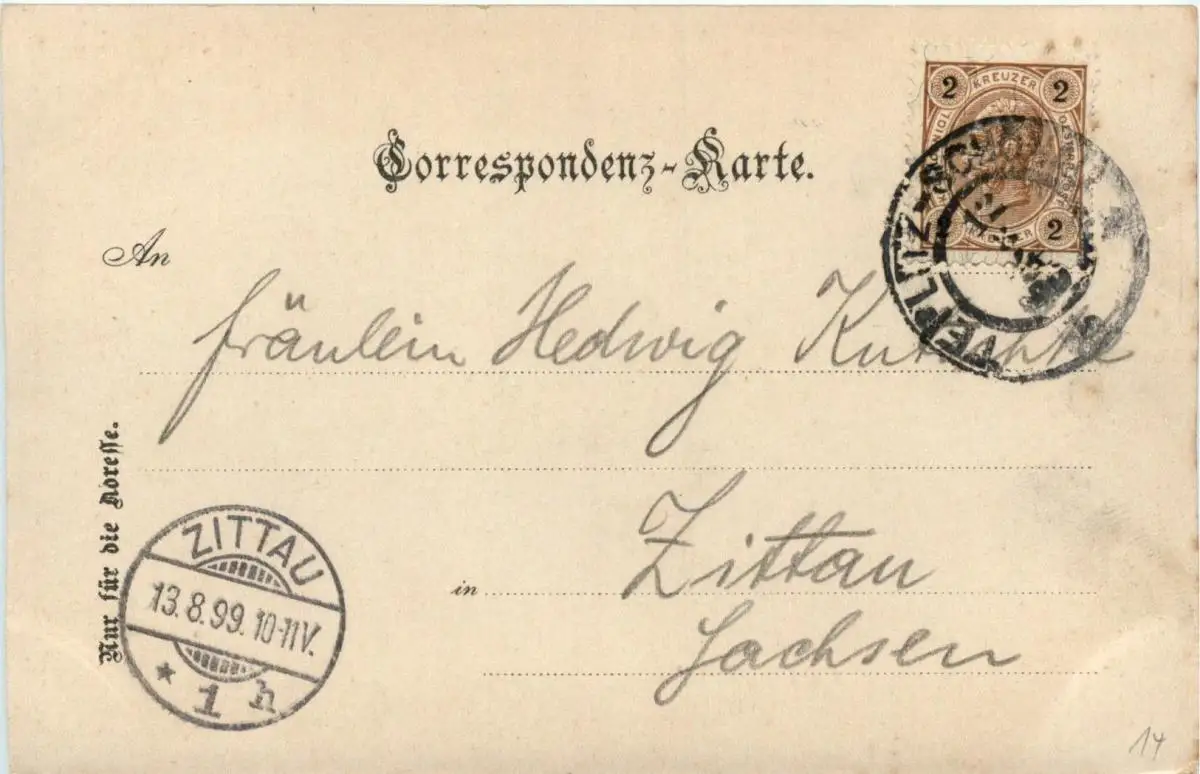 2 KREUZER 2
2
Correspondenz-Karte.
TEPLITZ-SCHÖN
An
Fräulein Hedwig
Nur für die Adresse.
in Zittau
Sachsen
ZITTAU
13.8.99.10-11V.
* 1 h
14